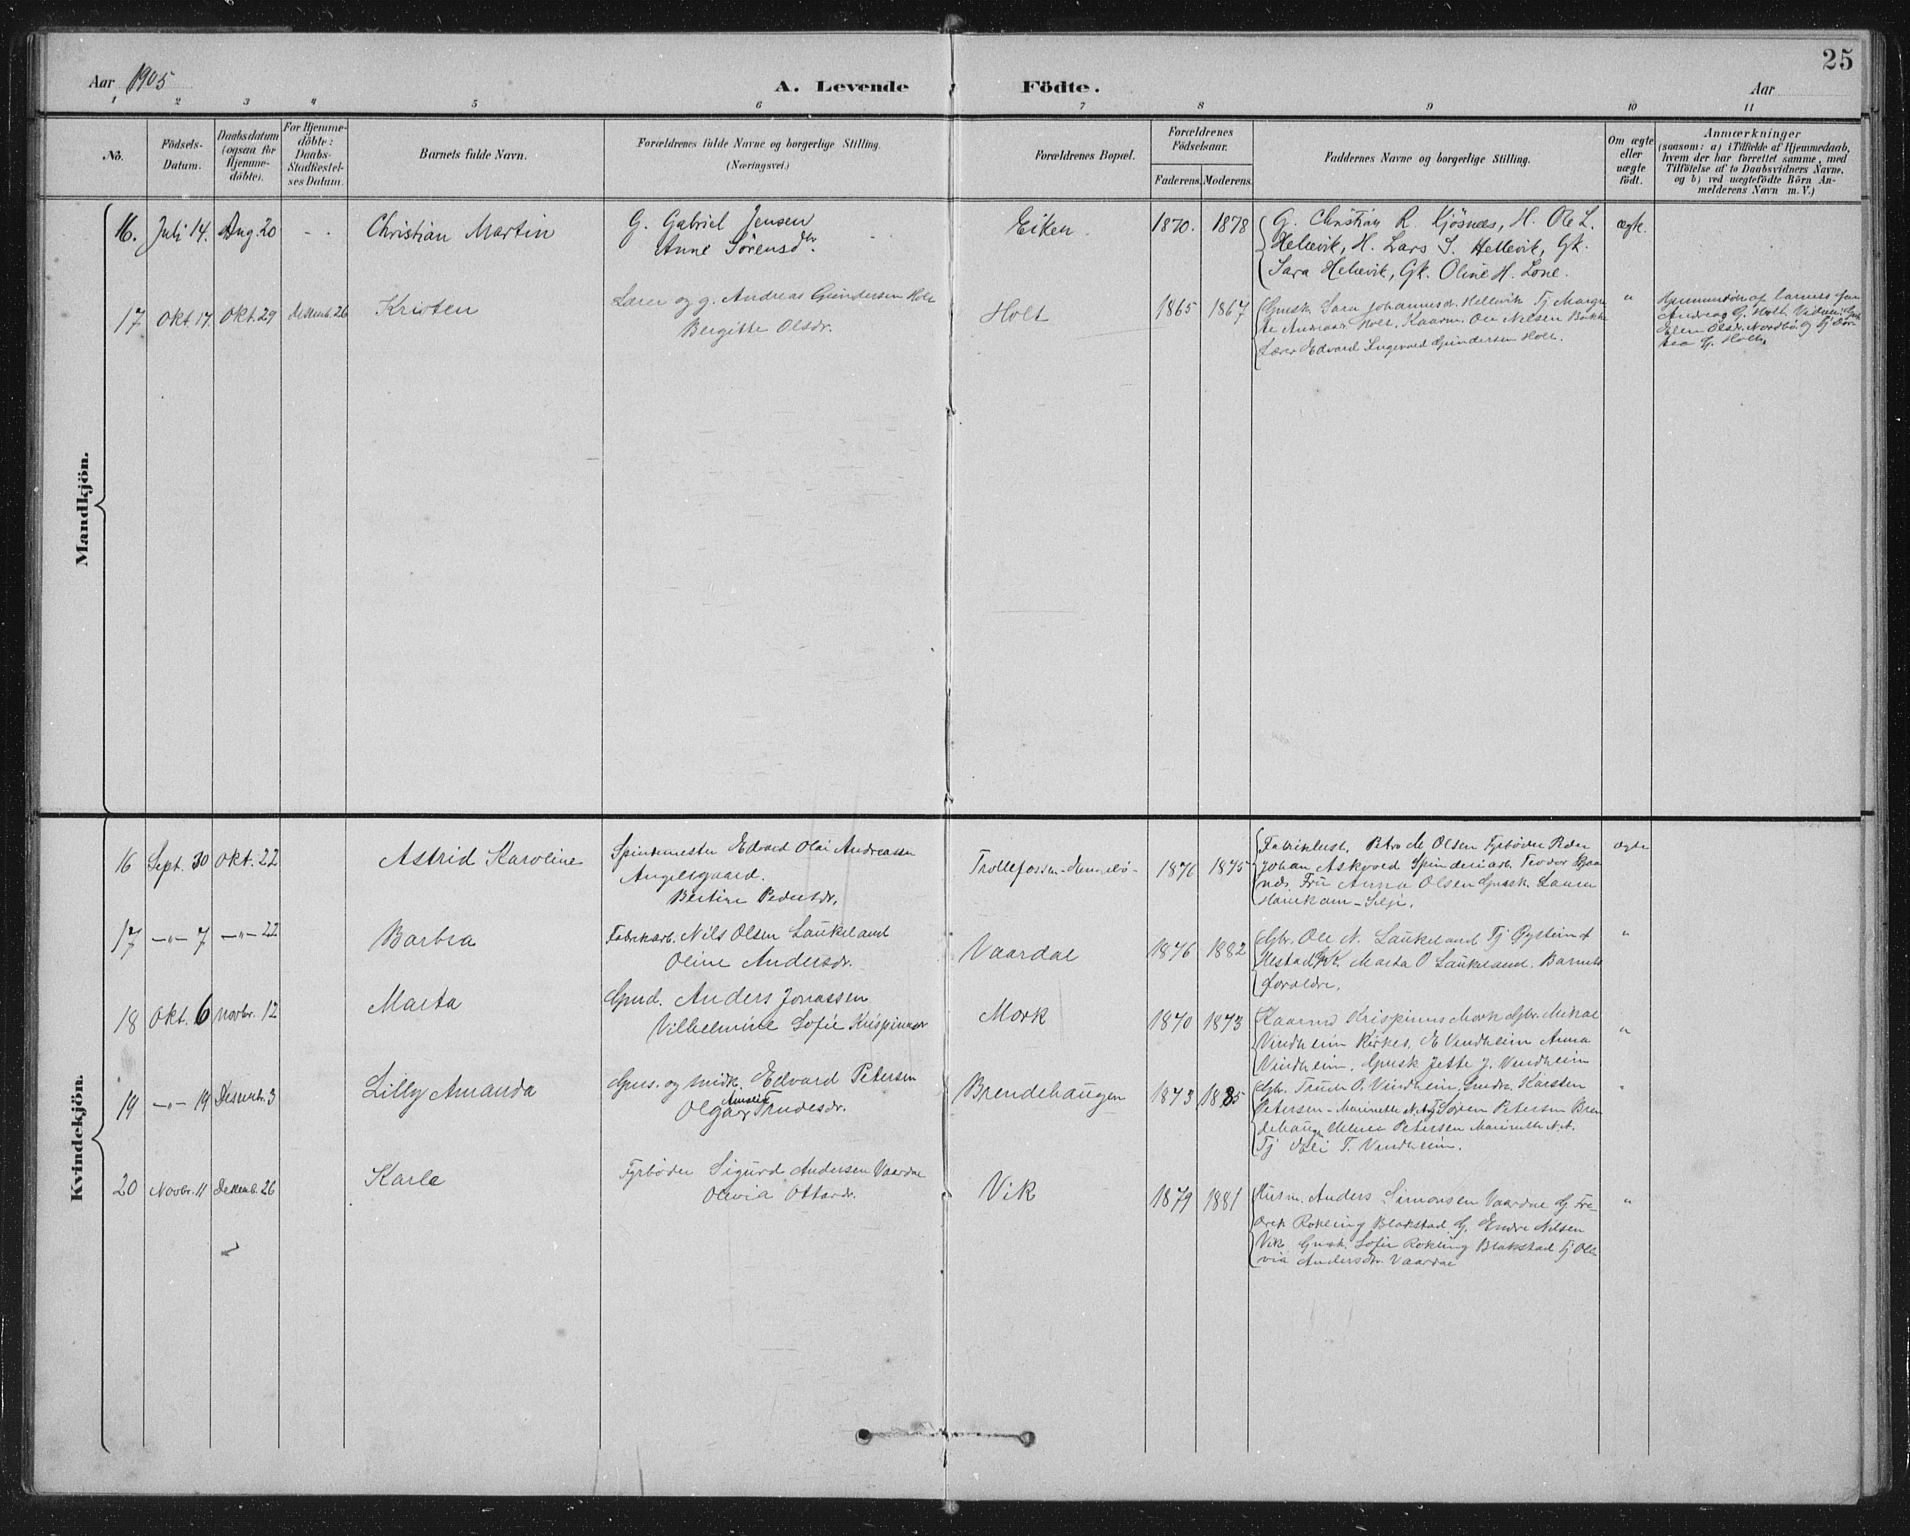 25
Aar 1905
A. Levende Födte.
Aar
1 2 3 4 5 6 7 8 9 10 11
No.
Födsels-
Datum.
Daabsdatum
(ogsaa for
Hjemme-
döbte).
For Hjemme-
döbte:
Daabs-
Stadfæstel-
ses Datum.
Barnets fulde Navn.
Forældrenes fulde Navne og borgerlige Stilling.
(Næringsvei.)
Forældrenes Bopæl.
Forældrenes
Födselsaar.
Faderens.
Moderens.
Faddernes Navne og borgerlige Stilling.
Om ægte
eller
uægte
födt.
Anmærkninger
(saasom: a) i Tilfælde af Hjemmedaab,
hvem der har forrettet samme, med
Tilföielse af to Daabsvidners Navne,
og b) ved uægtefödte Börn An-
melderens Navn m. V.)
Mandkjön.
16. Juli 14. Aug. 20 - - Christian Martin
G. Gabriel Jensen
Anne Sörensdtr.
Eiken. 1870. 1878
G. Christian R. Kjösnes, H. Ole L.
Hellevik, H. Lars S. Hellevik, Gk.
Sara Hellevik, Gk. Oline H. Lone.
ægte.
17 Okt. 17. Okt. 29 Desemb. 26 Kristen
Lærer og g. Andreas Gundersen Holt
Bergitte Olsdr.
Holt 1865 1867
Gmsk. Sara Johannesdr. Hellevik Tj. Margre
te Andreasdr. Holt, Kaarm. Ole Nilsen Bakke
Lærer Edvard Ingevald Gundersen Holt.
"
Hjemmedöbt af barnets far
Andreas G. Holt. Vidner:
Elen Olsdr. Nordbö og Tj.
G. Holt.
Kvindekjön.
16 Sept. 30 Okt. 22 Astrid Karoline
Spindemester Edvard Olai Andreassen
Angelsgaard.
Bertine Pedersdr.
Trollefossen 1876 1875
Fabrikbest. Petro M Olsen Fyrböder Peder
Johan Askvold Spinderiarb. Teodor
Fru Anna Olsen Gmsk. Laura
ægte
17 -"- 7 -"- 22 Barbra
Fabrikarb. Nils Olsen Laukeland
Oline Andersdr.
Vaardal 1876 1882
Gbr. Ole N. Laukeland Tj Öystein
Nestad Gk. Marta O Laukeland. Barnets
foreldre.
"
18 Okt. 6 Novbr. 12 Marta
Gmd. Anders Jonassen
Vilhelmine Sofie Krispinusdr
Mork 1870 1873
Kaarmd Krispinus Mork Gbr. Mikal
Vindheim Kirkes. E Vindheim Anna
Vindheim. Gmsk Jette J. Vindheim
"
19 -"- 19 Desemb. 3 Lilly Amanda
Gms. og smidk. Edvard Petersen
Olga Amalie Trudesdr.
Brendehaugen 1873 1885
Gbr. Trude O. Vindheim, Smdr. Karsten
Petersen - Marinette N.A. Sören Petersen Bren
dehaugen Petersen Marinette N.A.
Tj Oli T. Vindheim.
"
20 Novbr. 11 Desemb. 26 Karla
Fyrböder Sigurd Andersen Vaardal
Olivia Ottardr.
Vik 1879 1881
Husm. Anders Simonsen Vaardal G Fre-
drik Rokling Blokstad G. Endre Nilsen
Vik Gmsk. Sofie Rokling Blokstad Tj Oli
via Andersdr. Vaardal
"